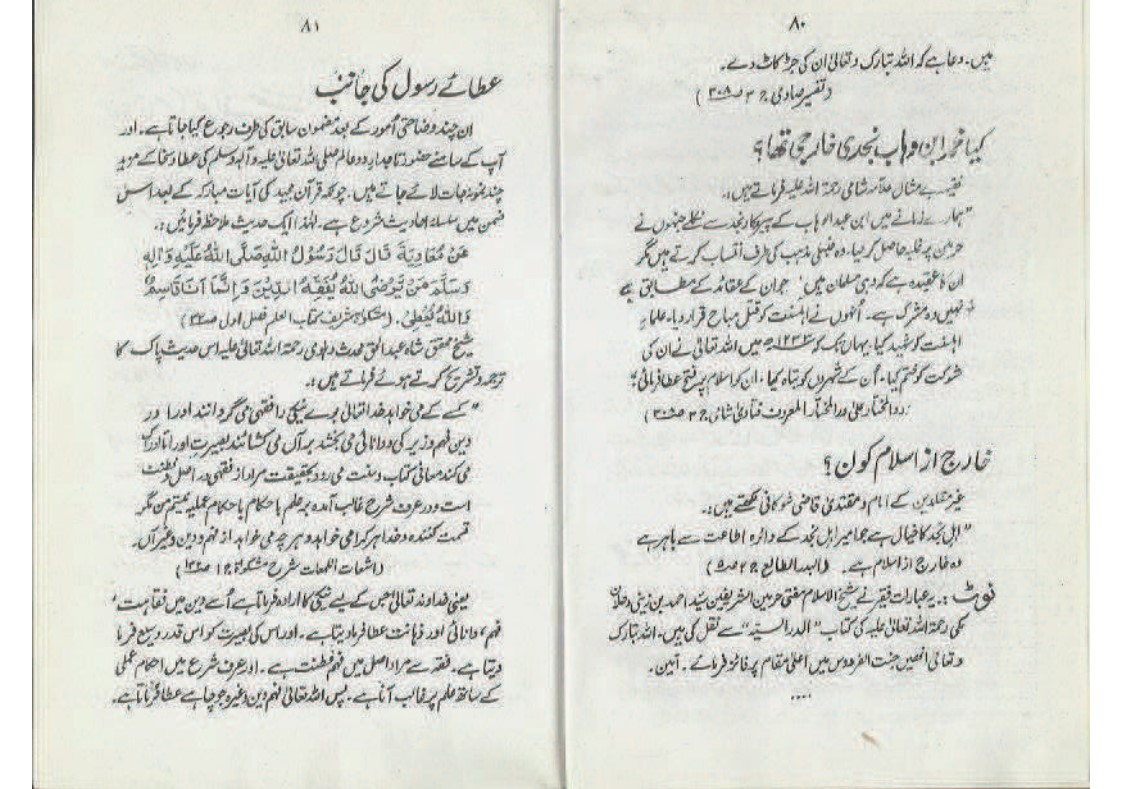 ۸۰
ہیں۔ دعا ہے کہ اللہ تبارک و تعالیٰ ان کی جڑ کاٹ دے۔
(تفسیر صاوی ج ۳ ص ۳۰۸)
کیا محمد ابن وہاب نجدی خارجی تھا؟
فقیہ بے مثال علامہ شامی رحمۃ اللہ علیہ فرماتے ہیں:۔
"ہمارے زمانے میں ابن عبدالوہاب کے پیروکار نجد سے نکلے جنہوں نے
حرمین پر غلبہ حاصل کر لیا۔ وہ حنبلی مذہب کی طرف انتساب کرتے ہیں مگر
ان کا عقیدہ ہے کہ وہی مسلمان ہیں جو ان کے عقائد کے مطابق
نہیں وہ مشرک ہے۔ اُنھوں نے اہلسنت کو قتل مباح قرار دیا۔ علماء
اہلسنت کو شہید کیا۔ یہاں تک کہ ۱۲۳۳ھ میں اللہ تعالیٰ نے ان کی
شوکت کو ختم کیا۔ اُن کے شہروں کو تباہ کیا۔ ان کو اسلام پر فتح عطا فرمائی؛
(رد المختار علی در المختار المعروف فتاویٰ شامی ج ۳ ص ۳۰۹)
خارج از اسلام کون؟
غیر مقلدین کے امام و مقتدیٰ قاضی شوکانی لکھتے ہیں:۔
"اہل نجد کا خیال ہے جو امیر اہل نجد کے دائرہ اطاعت سے باہر ہے
وہ خارج از اسلام ہے۔ (البدر الطالع ج ۲ ص ۵)
نوٹ:۔ یہ عبارات فقیر نے شیخ الاسلام مفتی حرمین الشریفین سید احمد بن زینی دحلان
مکی رحمۃ اللہ تعالیٰ علیہ کی کتاب "الدرر السنیہ" سے نقل کی ہیں۔ اللہ تبارک
و تعالیٰ انھیں جنت الفردوس میں اعلیٰ مقام پر فائز فرمائے۔ آمین۔
....
۸۱
عطائے رسول کی جانب
ان چند وضاحتی اُمور کے بعد مضمون سابق کی طرف رجوع کیا جاتا ہے۔ اور
آپ کے سامنے حضور تاجدار دو عالم صلی اللہ تعالیٰ علیہ و آلہ وسلم کی عطا و سخا کے مزید
چند نمونہ جات لائے جاتے ہیں۔ چونکہ قرآن مجید کی آیات مبارکہ کے بعد اس
ضمن میں سلسلہ احادیث شروع ہے۔ لہٰذا ایک حدیث ملاحظہ فرمائیں:۔
عَنْ مُعَاوِيَةَ قَالَ قَالَ رَسُوْلُ اللهِ صَلَّى اللهُ عَلَيْهِ وَاٰلِهٖ
وَسَلَّمَ مَنْ يَّرْضَى اللهُ يُفَقِّهْهُ الدِّيْنَ وَاِنَّمَا اَنَا قَاسِمٌ
وَاللهُ يُعْطِىْ. (مشکوٰۃ شریف کتاب العلم فصل اول ص ۳۲)
شیخ محقق شاہ عبدالحق محدث دہلوی رحمۃ اللہ تعالیٰ علیہ اس حدیث پاک کا
ترجمہ و تشریح کرتے ہوئے فرماتے ہیں:۔
"کسے کہ می خواہد خدا تعالیٰ بوے نیکی را فقہی می گرداند اورا در
دین فہم و زیرکی و دانائی می بخشد بر آں می کشائند بصیرت اورا تا ادراک
می کند معانی کتاب و سنت می رود بحقیقت مراد از فقہی در اصل و فطنت
است و در عرف شرع غالب آمدہ بر علم باحکام باحکام عملیہ نیستم من مگر
قسمت کنندہ و خدا ہر کرا می خواہد و ہر چہ می خواہد از فہم و دین و غیر آں۔
(اشعات اللمعات شرح مشکوٰۃ ج ۱ ص ۱۳۶)
یعنی خداوند تعالیٰ جس کے لیے نیکی کا ارادہ فرماتا ہے اُسے دین میں فقاہت،
فہم، دانائی اور ذہانت عطا فرما دیتا ہے۔ اور اس کی بصیرت کو اس قدر وسیع فرما
دیتا ہے۔ فقہ سے مراد اصل میں فہم فطنت ہے۔ اور عرف شرع میں احکام عملی
کے ساتھ علم پر غالب آنا ہے۔ پس اللہ تعالیٰ فہم دین وغیرہ جو چاہے عطا فرماتا ہے۔